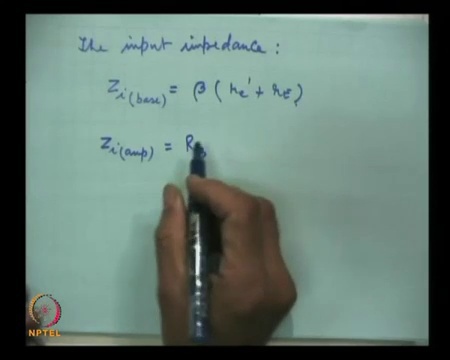 The input impedance :
Zi(base) = β ( re' + rE )
Zi(amp) = R
NPTEL